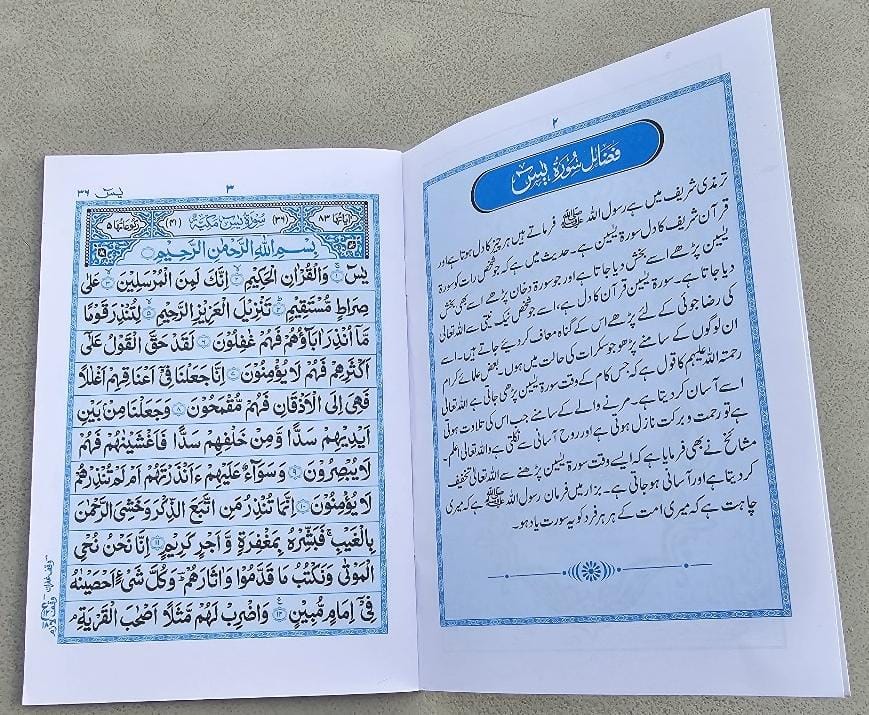 ۲
فضائل سورۃ یٰسٓ
ترمذی شریف میں ہے رسول اللہ ﷺ فرماتے ہیں ہر چیز کا دل ہوتا ہے اور
قرآن شریف کا دل سورۃ یٰسین ہے۔ حدیث میں ہے کہ جو شخص رات کو سورۃ
یٰسین پڑھے اسے بخش دیا جاتا ہے اور جو سورۃ دخان پڑھے اسے بھی بخش
دیا جاتا ہے۔ سورۃ یٰسین قرآن کا دل ہے، اسے جو شخص نیک نیتی سے اللہ تعالیٰ
کی رضا جوئی کے لئے پڑھے اس کے گناہ معاف کر دیئے جاتے ہیں۔ اسے
ان لوگوں کے سامنے پڑھو جو سکرات کی حالت میں ہوں۔ بعض علمائے کرام
رحمتہ اللہ علیہم کا قول ہے کہ جس کام کے وقت سورۃ یٰسین پڑھی جاتی ہے اللہ تعالیٰ
اسے آسان کر دیتا ہے۔ مرنے والے کے سامنے جب اس کی تلاوت ہوتی
ہے تو رحمت و برکت نازل ہوتی ہے اور روح آسانی سے نکلتی ہے واللہ تعالیٰ اعلم۔
مشائخ نے بھی فرمایا ہے کہ ایسے وقت سورۃ یٰسین پڑھنے سے اللہ تعالیٰ تخفیف
کر دیتا ہے اور آسانی ہو جاتی ہے۔ بزار میں فرمان رسول اللہ ﷺ ہے کہ میری
چاہت ہے کہ میری امت کے ہر ہر فرد کو یہ سورت یاد ہو۔
۳ یٰسٓ ۳۶
اٰیاتُہَا ۸۳ (۳۶) سُوۡرَۃُ یٰسٓ مَکِّیَّۃٌ (۴۱) رُکُوۡعَاتُہَا ۵
بِسۡمِ اللّٰهِ الرَّحۡمٰنِ الرَّحِيۡمِ
يٰسٓ ۚ‏﴿۱﴾ وَالۡقُرۡاٰنِ الۡحَكِيۡمِ ۙ‏﴿۲﴾ اِنَّكَ لَمِنَ الۡمُرۡسَلِيۡنَۙ‏﴿۳﴾ عَلٰى
صِرَاطٍ مُّسۡتَقِيۡمٍؕ‏﴿۴﴾ تَنۡزِيۡلَ الۡعَزِيۡزِ الرَّحِيۡمِ ۙ‏﴿۵﴾ لِتُنۡذِرَ قَوۡمًا
مَّاۤ اُنۡذِرَ اٰبَآؤُهُمۡ فَهُمۡ غٰفِلُوۡنَ‏﴿۶﴾ لَقَدۡ حَقَّ الۡقَوۡلُ عَلٰٓى
اَكۡثَرِهِمۡ فَهُمۡ لَا يُؤۡمِنُوۡنَ‏﴿۷﴾ اِنَّا جَعَلۡنَا فِىۡۤ اَعۡنَاقِهِمۡ اَغۡلٰلًا
فَهِىَ اِلَى الۡاَذۡقَانِ فَهُمۡ مُّقۡمَحُوۡنَ‏﴿۸﴾ وَجَعَلۡنَا مِنۡۢ بَيۡنِ
اَيۡدِيۡهِمۡ سَدًّا وَّمِنۡ خَلۡفِهِمۡ سَدًّا فَاَغۡشَيۡنٰهُمۡ فَهُمۡ
لَا يُبۡصِرُوۡنَ‏﴿۹﴾ وَسَوَآءٌ عَلَيۡهِمۡ ءَاَنۡذَرۡتَهُمۡ اَمۡ لَمۡ تُنۡذِرۡهُمۡ
لَا يُؤۡمِنُوۡنَ‏﴿۱۰﴾ اِنَّمَا تُنۡذِرُ مَنِ اتَّبَعَ الذِّكۡرَ وَخَشِىَ الرَّحۡمٰنَ
بِالۡغَيۡبِۚ فَبَشِّرۡهُ بِمَغۡفِرَةٍ وَّاَجۡرٍ كَرِيۡمٍ‏﴿۱۱﴾ اِنَّا نَحۡنُ نُحۡىِ
الۡمَوۡتٰى وَنَكۡتُبُ مَا قَدَّمُوۡا وَاٰثَارَهُمۡؕ وَكُلَّ شَىۡءٍ اَحۡصَيۡنٰهُ
فِىۡۤ اِمَامٍ مُّبِيۡنٍ‏﴿۱۲﴾ وَاضۡرِبۡ لَهُمۡ مَّثَلًا اَصۡحٰبَ الۡقَرۡيَةِ ۘ
وقف غفران